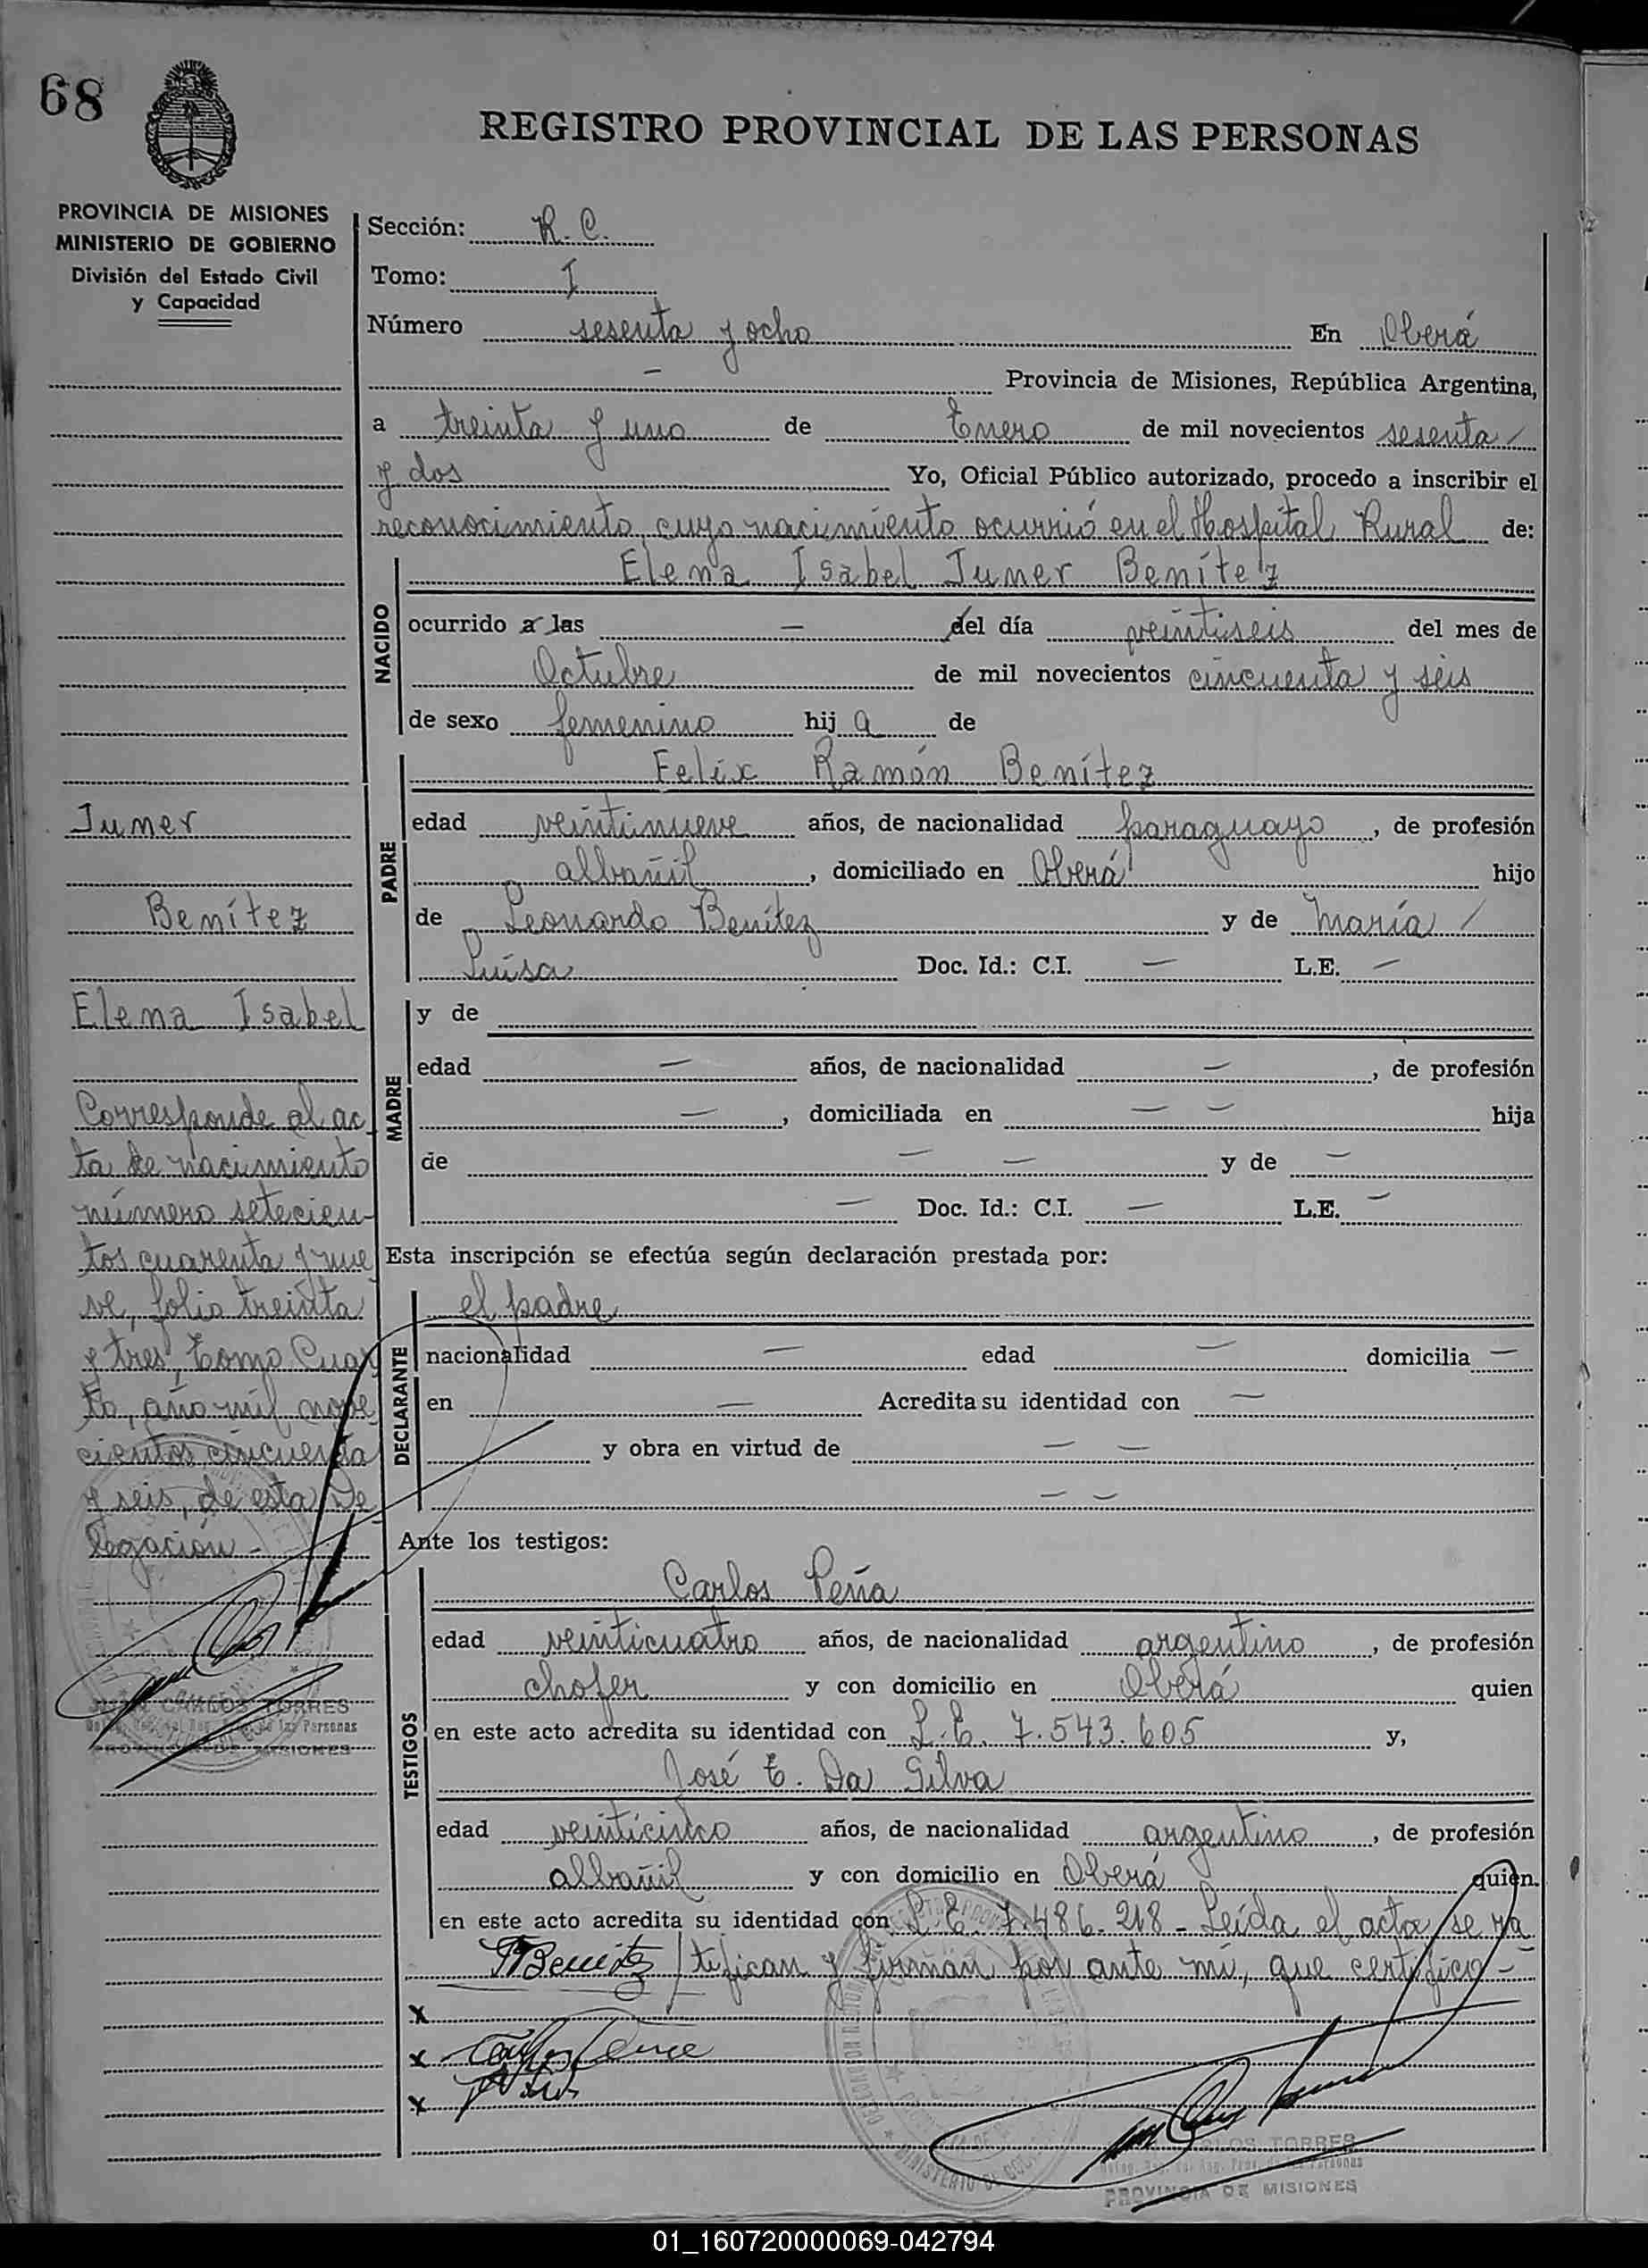 68
REGISTRO PROVINCIAL DE LAS PERSONAS
PROVINCIA DE MISIONES
MINISTERIO DE GOBIERNO
División del Estado Civil
y Capacidad
Sección: R. C.
Tomo: I
Número sesenta y ocho En Oberá
— Provincia de Misiones, República Argentina,
a treinta y uno de Enero de mil novecientos sesenta
y dos Yo, Oficial Público autorizado, procedo a inscribir el
reconocimiento, cuyo nacimiento ocurrió en el Hospital Rural de:
NACIDO
Elena Isabel Juner Benítez
ocurrido a las — del día veintiseis del mes de
Octubre de mil novecientos cincuenta y seis
de sexo femenino hija de
PADRE
Felix Ramón Benítez
edad veintinueve años, de nacionalidad paraguayo, de profesión
albañil, domiciliado en Oberá hijo
de Leonardo Benítez y de María
Luisa Doc. Id.: C.I. — L.E. —
MADRE
y de
edad — años, de nacionalidad —, de profesión
—, domiciliada en — — hija
de — — y de —
— Doc. Id.: C.I. — L.E. —
Juner
Benítez
Elena Isabel
Corresponde al ac
ta de nacimiento
número setecien-
tos cuarenta y nue
ve, folio treinta
y tres, Tomo Cuar
to, año mil nove
cientos cincuenta
y seis, de esta De
legación -
JUAN CARLOS TORRES
de las Personas
PROVINCIA DE MISIONES
Esta inscripción se efectúa según declaración prestada por:
DECLARANTE
el padre
nacionalidad — edad — domicilia —
en — Acredita su identidad con —
y obra en virtud de — —
— —
Ante los testigos:
TESTIGOS
Carlos Peña
edad veinticuatro años, de nacionalidad argentino, de profesión
chofer y con domicilio en Oberá quien
en este acto acredita su identidad con L.E. 7.543.605 y,
José E. Da Silva
edad veinticinco años, de nacionalidad argentino, de profesión
albañil y con domicilio en Oberá quien
en este acto acredita su identidad con L.E. 7.486.218 - Leída el acta, se ra
Benitez / tifican y firman por ante mí, que certifico -
x
x Carlos Peña
x
CARLOS TORRES
PROVINCIA DE MISIONES
01_160720000069-042794